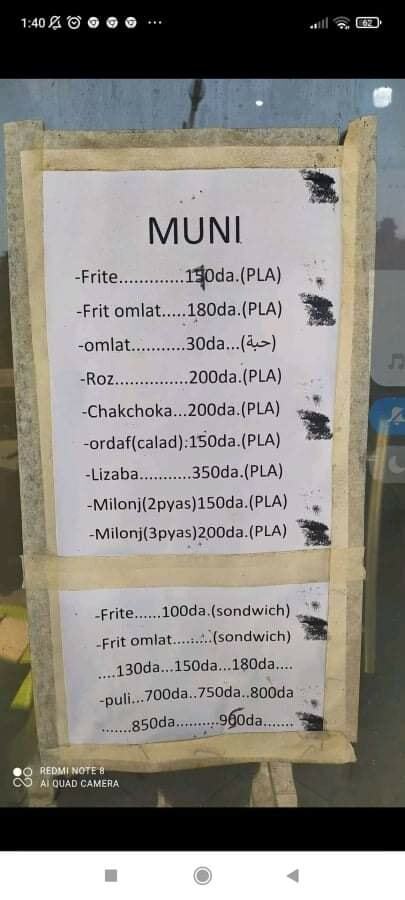 1:40 ... 62
MUNI
-Frite.............(PLA)
-Frit omlat.....180da.(PLA)
-omlat...........30da...(حبة)
-Roz...............200da.(PLA)
-Chakchoka...200da.(PLA)
-ordaf(calad):150da.(PLA)
-Lizaba...........350da.(PLA)
-Milonj(2pyas)150da.(PLA)
-Milonj(3pyas)200da.(PLA)
-Frite......100da.(sondwich)
-Frit omlat........(sondwich)
....130da...150da...180da....
-puli...700da..750da..800da
.......850da.................
REDMI NOTE 8
AI QUAD CAMERA